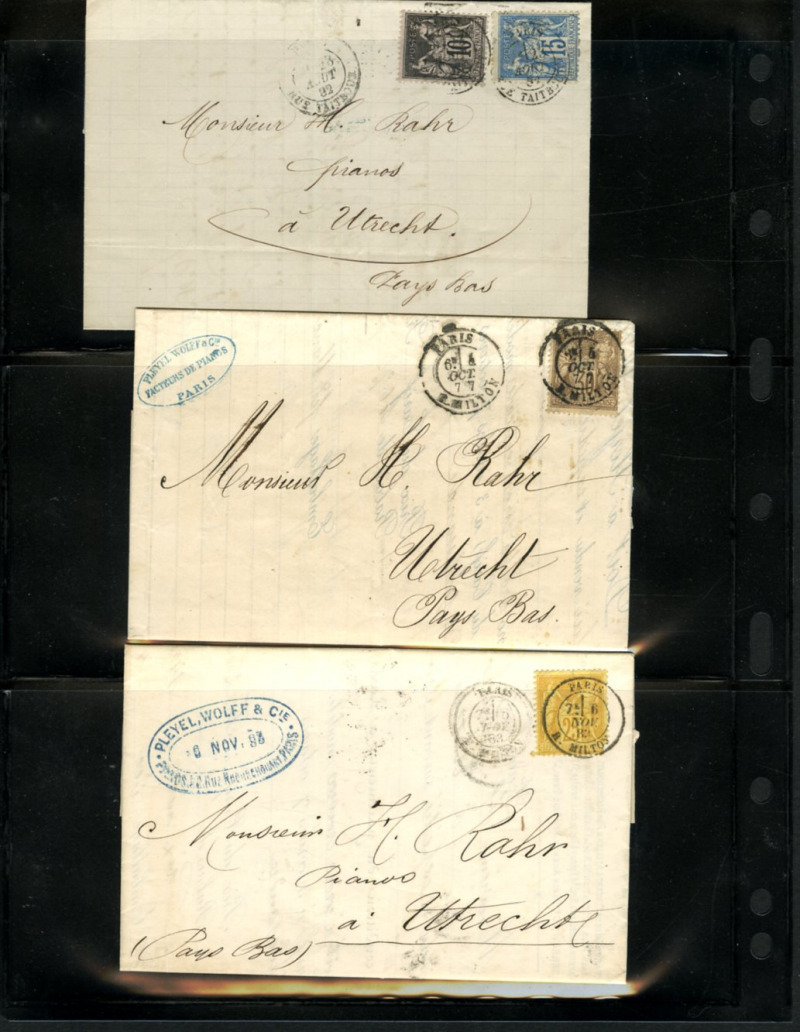 10
15
PARIS
AOUT
82
RUE TAITBOUT
E TAITBOU
Monsieur H. Rahr
pianos
à Utrecht.
Pays Bas
PLEYEL WOLFF & Cie
FACTEURS DE PIANOS
PARIS
PARIS
6E 4
OCT.
77
R. MILTON
PARIS
OCT
R. MILTON
Monsieur H. Rahr
Utrecht
Pays Bas.
PLEYEL, WOLFF & CIE
6 NOV. 83
PARIS
PARIS
83
PARIS
7E 6
NOV
83
R. MILTON
Monsieur H. Rahr
Pianos
à Utrecht
(Pays Bas)